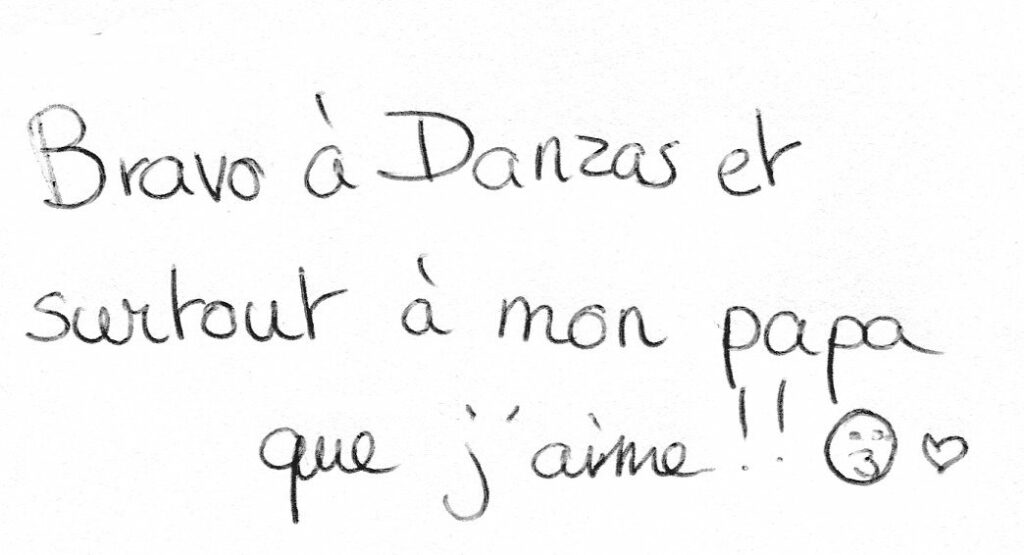 Bravo à Danzas et
surtout à mon papa
que j'aime !!